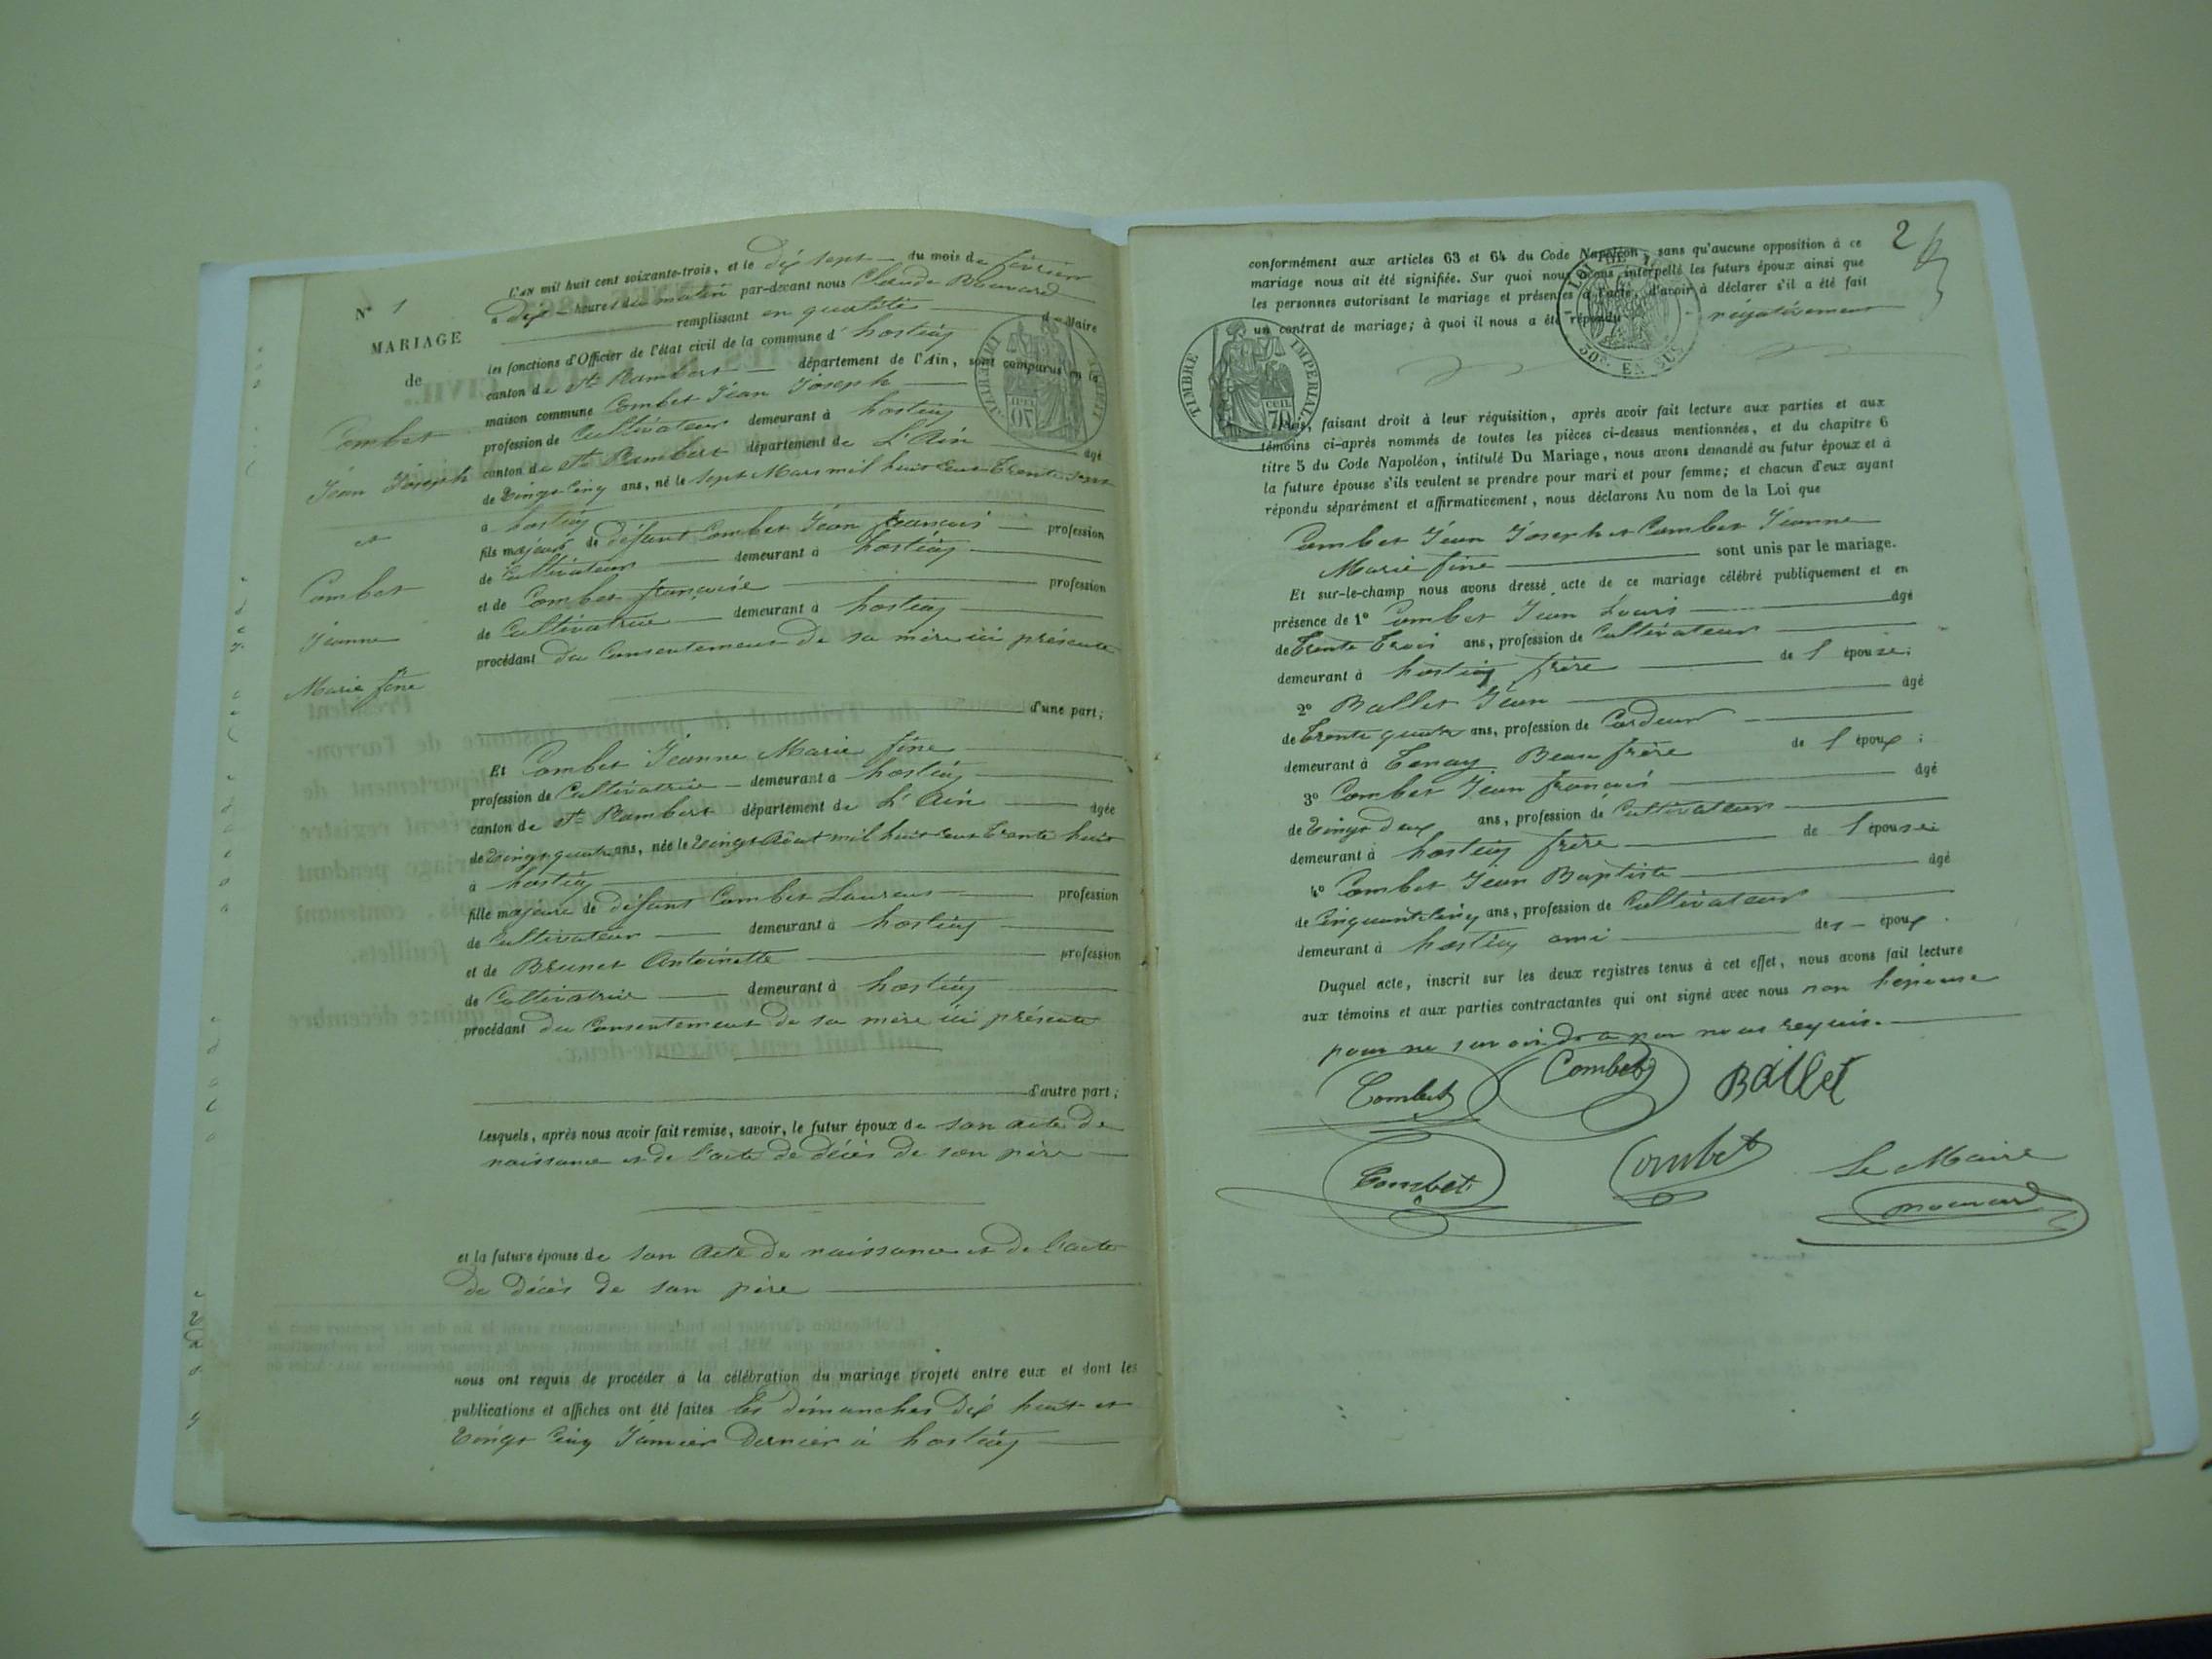 N° 1
MARIAGE
de
Combet
Jean Joseph
et
Combet
Jeanne
Marie fine
L'AN mil huit cent soixante-trois, et le dix sept du mois de février
à dix heures du matin par-devant nous Claude
remplissant en qualité de Maire
les fonctions d'Officier de l'état civil de la commune d' hostiaz
canton de St Rambert département de l'Ain, sont comparus en la
maison commune Combet Jean Joseph
profession de Cultivateur demeurant à hostiaz
canton de St Rambert département de L'Ain âgé
de Vingt Cinq ans, né le sept Mars mil huit Cent trente sept
à hostiaz
fils majeur de défunt Combet Jean francois profession
de Cultivateur demeurant à hostiaz
et de Combet francoise profession
de Cultivatrice demeurant à hostiaz
procédant du Consentement de sa mère ici présente
d'une part;
Et Combet Jeanne Marie fine
profession de Cultivatrice demeurant à hostiaz
canton de St Rambert département de L'Ain âgée
de Vingt quatre ans, née le Vingt Aout mil huit Cent trente huit
à hostiaz
fille majeure de défunt Combet Laurent profession
de Cultivateur demeurant à hostiaz
et de Brunet Antoinette profession
de Cultivatrice demeurant à hostiaz
procédant du Consentement de sa mère ici présente
d'autre part;
Lesquels, après nous avoir fait remise, savoir, le futur époux de son acte de
naissance et de l'acte de décès de son père
et la future épouse de son acte de naissance et de l'acte
de décès de son père
nous ont requis de procéder à la célébration du mariage projeté entre eux et dont les
publications et affiches ont été faites les dimanches dix huit et
Vingt Cinq Janvier dernier à hostiaz
2
conformément aux articles 63 et 64 du Code Napoléon, sans qu'aucune opposition à ce
mariage nous ait été signifiée. Sur quoi nous avons interpellé les futurs époux ainsi que
les personnes autorisant le mariage et présentes à l'acte, d'avoir à déclarer s'il a été fait
un contrat de mariage; à quoi il nous a été répondu négativement
TIMBRE IMPERIAL
70
50c. EN SUS
Nous, faisant droit à leur réquisition, après avoir fait lecture aux parties et aux
témoins ci-après nommés de toutes les pièces ci-dessus mentionnées, et du chapitre 6
titre 5 du Code Napoléon, intitulé Du Mariage, nous avons demandé au futur époux et à
la future épouse s'ils veulent se prendre pour mari et pour femme; et chacun d'eux ayant
répondu séparément et affirmativement, nous déclarons Au nom de la Loi que
Combet Jean Joseph et Combet Jeanne
Marie fine sont unis par le mariage.
Et sur-le-champ nous avons dressé acte de ce mariage célébré publiquement et en
présence de 1° Combet Jean Louis âgé
de trente trois ans, profession de Cultivateur
demeurant à hostiaz frère de l'épouse;
2° Ballet Jean âgé
de trente quatre ans, profession de Cardeur
demeurant à Tenay Beau frère de l'époux;
3° Combet Jean francois âgé
de Vingt deux ans, profession de Cultivateur
demeurant à hostiaz frère de l'épouse
4° Combet Jean Baptiste âgé
de Cinquante Cinq ans, profession de Cultivateur
demeurant à hostiaz ami des époux.
Duquel acte, inscrit sur les deux registres tenus à cet effet, nous avons fait lecture
aux témoins et aux parties contractantes qui ont signé avec nous non l'épouse
pour ne savoir de ce par nous requis.
Combet Combet Ballet
Combet Combet Le Maire